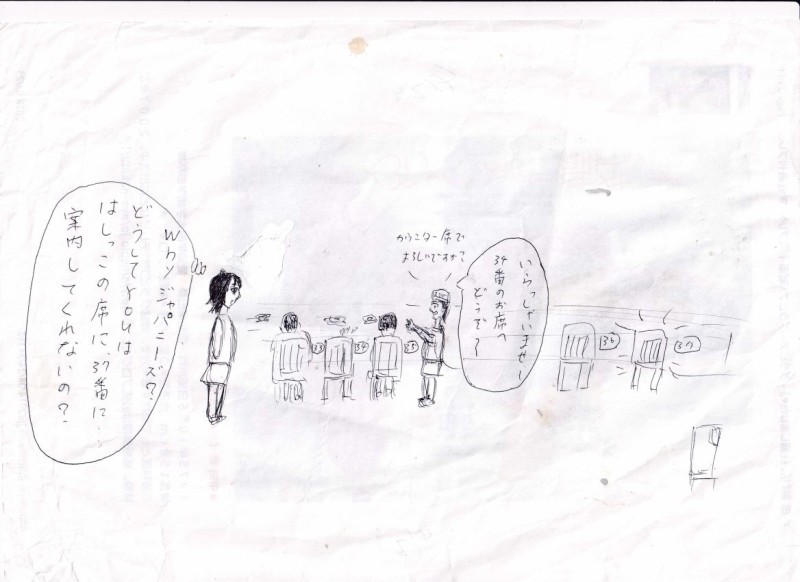 Why ジャパニーズ?
どうしてYOUは
はしっこの席に、37番に
案内してくれないの?
カウンター席で
よろしいですか?
いらっしゃいませー
34番のお席へ
どうぞ〜
33
34
35
36
37